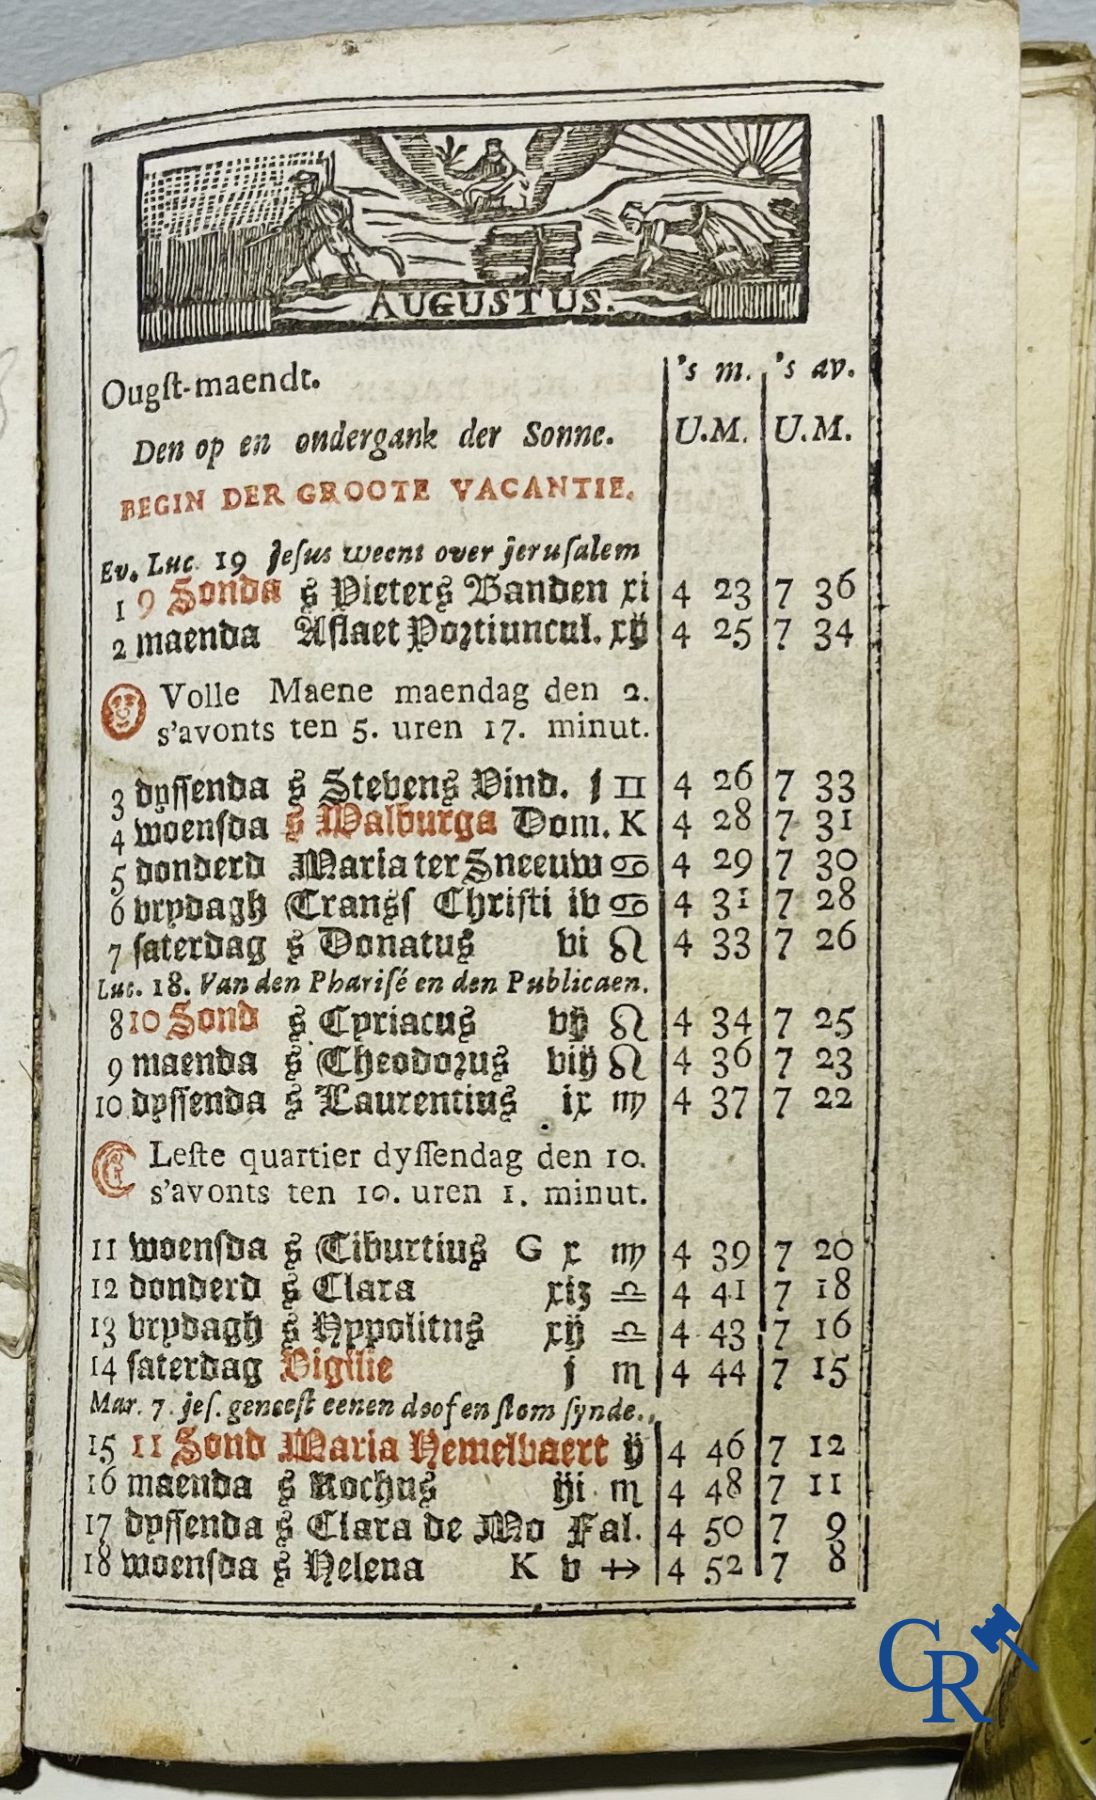 AUGUSTUS.
Ougſt-maendt.
's m. 's av.
Den op en ondergank der Sonne. U.M. U.M.
BEGIN DER GROOTE VACANTIE.
Ev. Luc. 19 Jeſus weent over jeruſalem
1 9 Sonda s Pieters Banden xi 4 23 7 36
2 maenda Aflaet Portiuncul. xij 4 25 7 34
Volle Maene maendag den 2.
s'avonts ten 5. uren 17. minut.
3 dyſſenda s Stevens Vind. j ♊ 4 26 7 33
4 woenſda s Walburga Dom. K 4 28 7 31
5 donderd Maria ter Sneeuw ♋ 4 29 7 30
6 vrydagh Transſ Chriſti iv ♋ 4 31 7 28
7 ſaterdag s Donatus vi ♌ 4 33 7 26
Luc. 18. Van den Phariſé en den Publicaen.
8 10 Sond s Cyriacus vij ♌ 4 34 7 25
9 maenda s Theodorus viij ♌ 4 36 7 23
10 dyſſenda s Laurentius ix ♍ 4 37 7 22
Leſte quartier dyſſendag den 10.
s'avonts ten 10. uren 1. minut.
11 woenſda s Tiburtius G x ♍ 4 39 7 20
12 donderd s Clara xiz ♎ 4 41 7 18
13 vrydagh s Hyppolitus xij ♎ 4 43 7 16
14 ſaterdag Vigilie j ♏ 4 44 7 15
Mar. 7. jeſ. geneeſt eenen doof en ſtom ſynde.
15 11 Sond Maria Hemelvaert ij 4 46 7 12
16 maenda s Rochus iji ♏ 4 48 7 11
17 dyſſenda s Clara de Mo Fal. 4 50 7 9
18 woenſda s Helena K v ♐ 4 52 7 8
CR